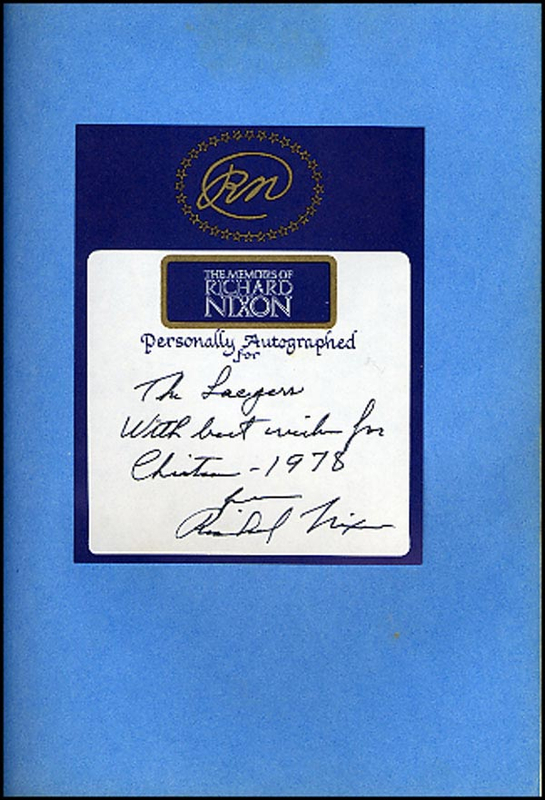 RN
THE MEMOIRS OF
RICHARD
NIXON
Personally Autographed
for
The
With best wishes for
Christmas - 1978
from
Richard Nixon